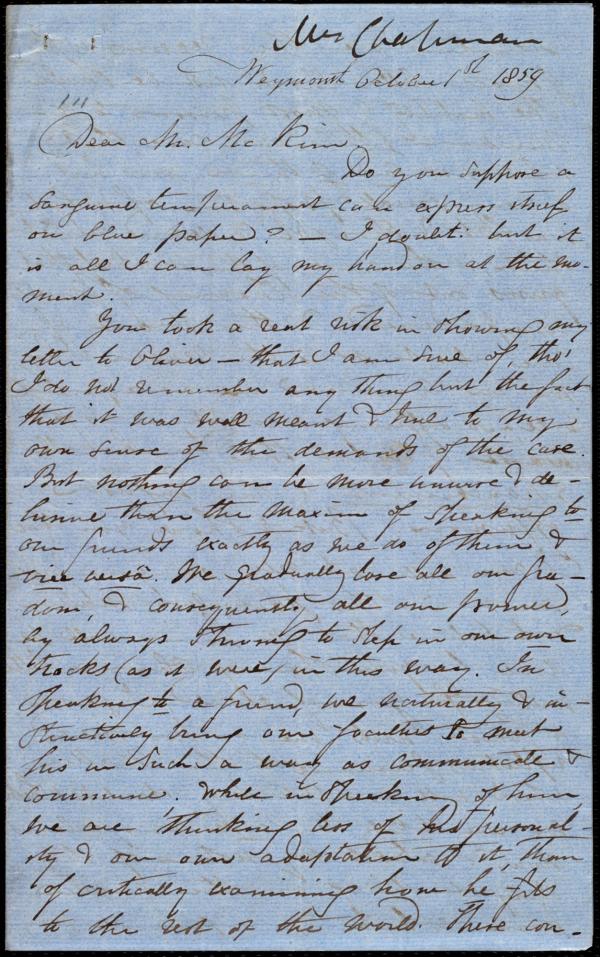 Mrs Chapman
Weymouth October 1st 1859
Dear Mr. McKim.
Do you suppose a
sanguine temperament can express itself
on blue paper? — I doubt: but it
is all I can lay my hand on at the mo-
ment.
You took a real risk in showing my
letter to Oliver — that I am sure of, tho'
I do not remember any thing but the fact
that it was well meant & true to my
own sense of the demands of the case.
But nothing can be more unwise & de-
lusive than the maxim of speaking to
our friends exactly as we do of them &
vice versâ. We gradually lose all our free-
dom, & consequently all our power,
by always striving to step in our own
tracks (as it were) in this way. In
speaking to a friend, we naturally & in-
stinctively bring our faculties to meet
his in such a way as communicate &
commune, while in speaking of him,
we are thinking less of his personal-
ity & our own adaptation to it, than
of critically examining how he fits
to the rest of the world. These con-